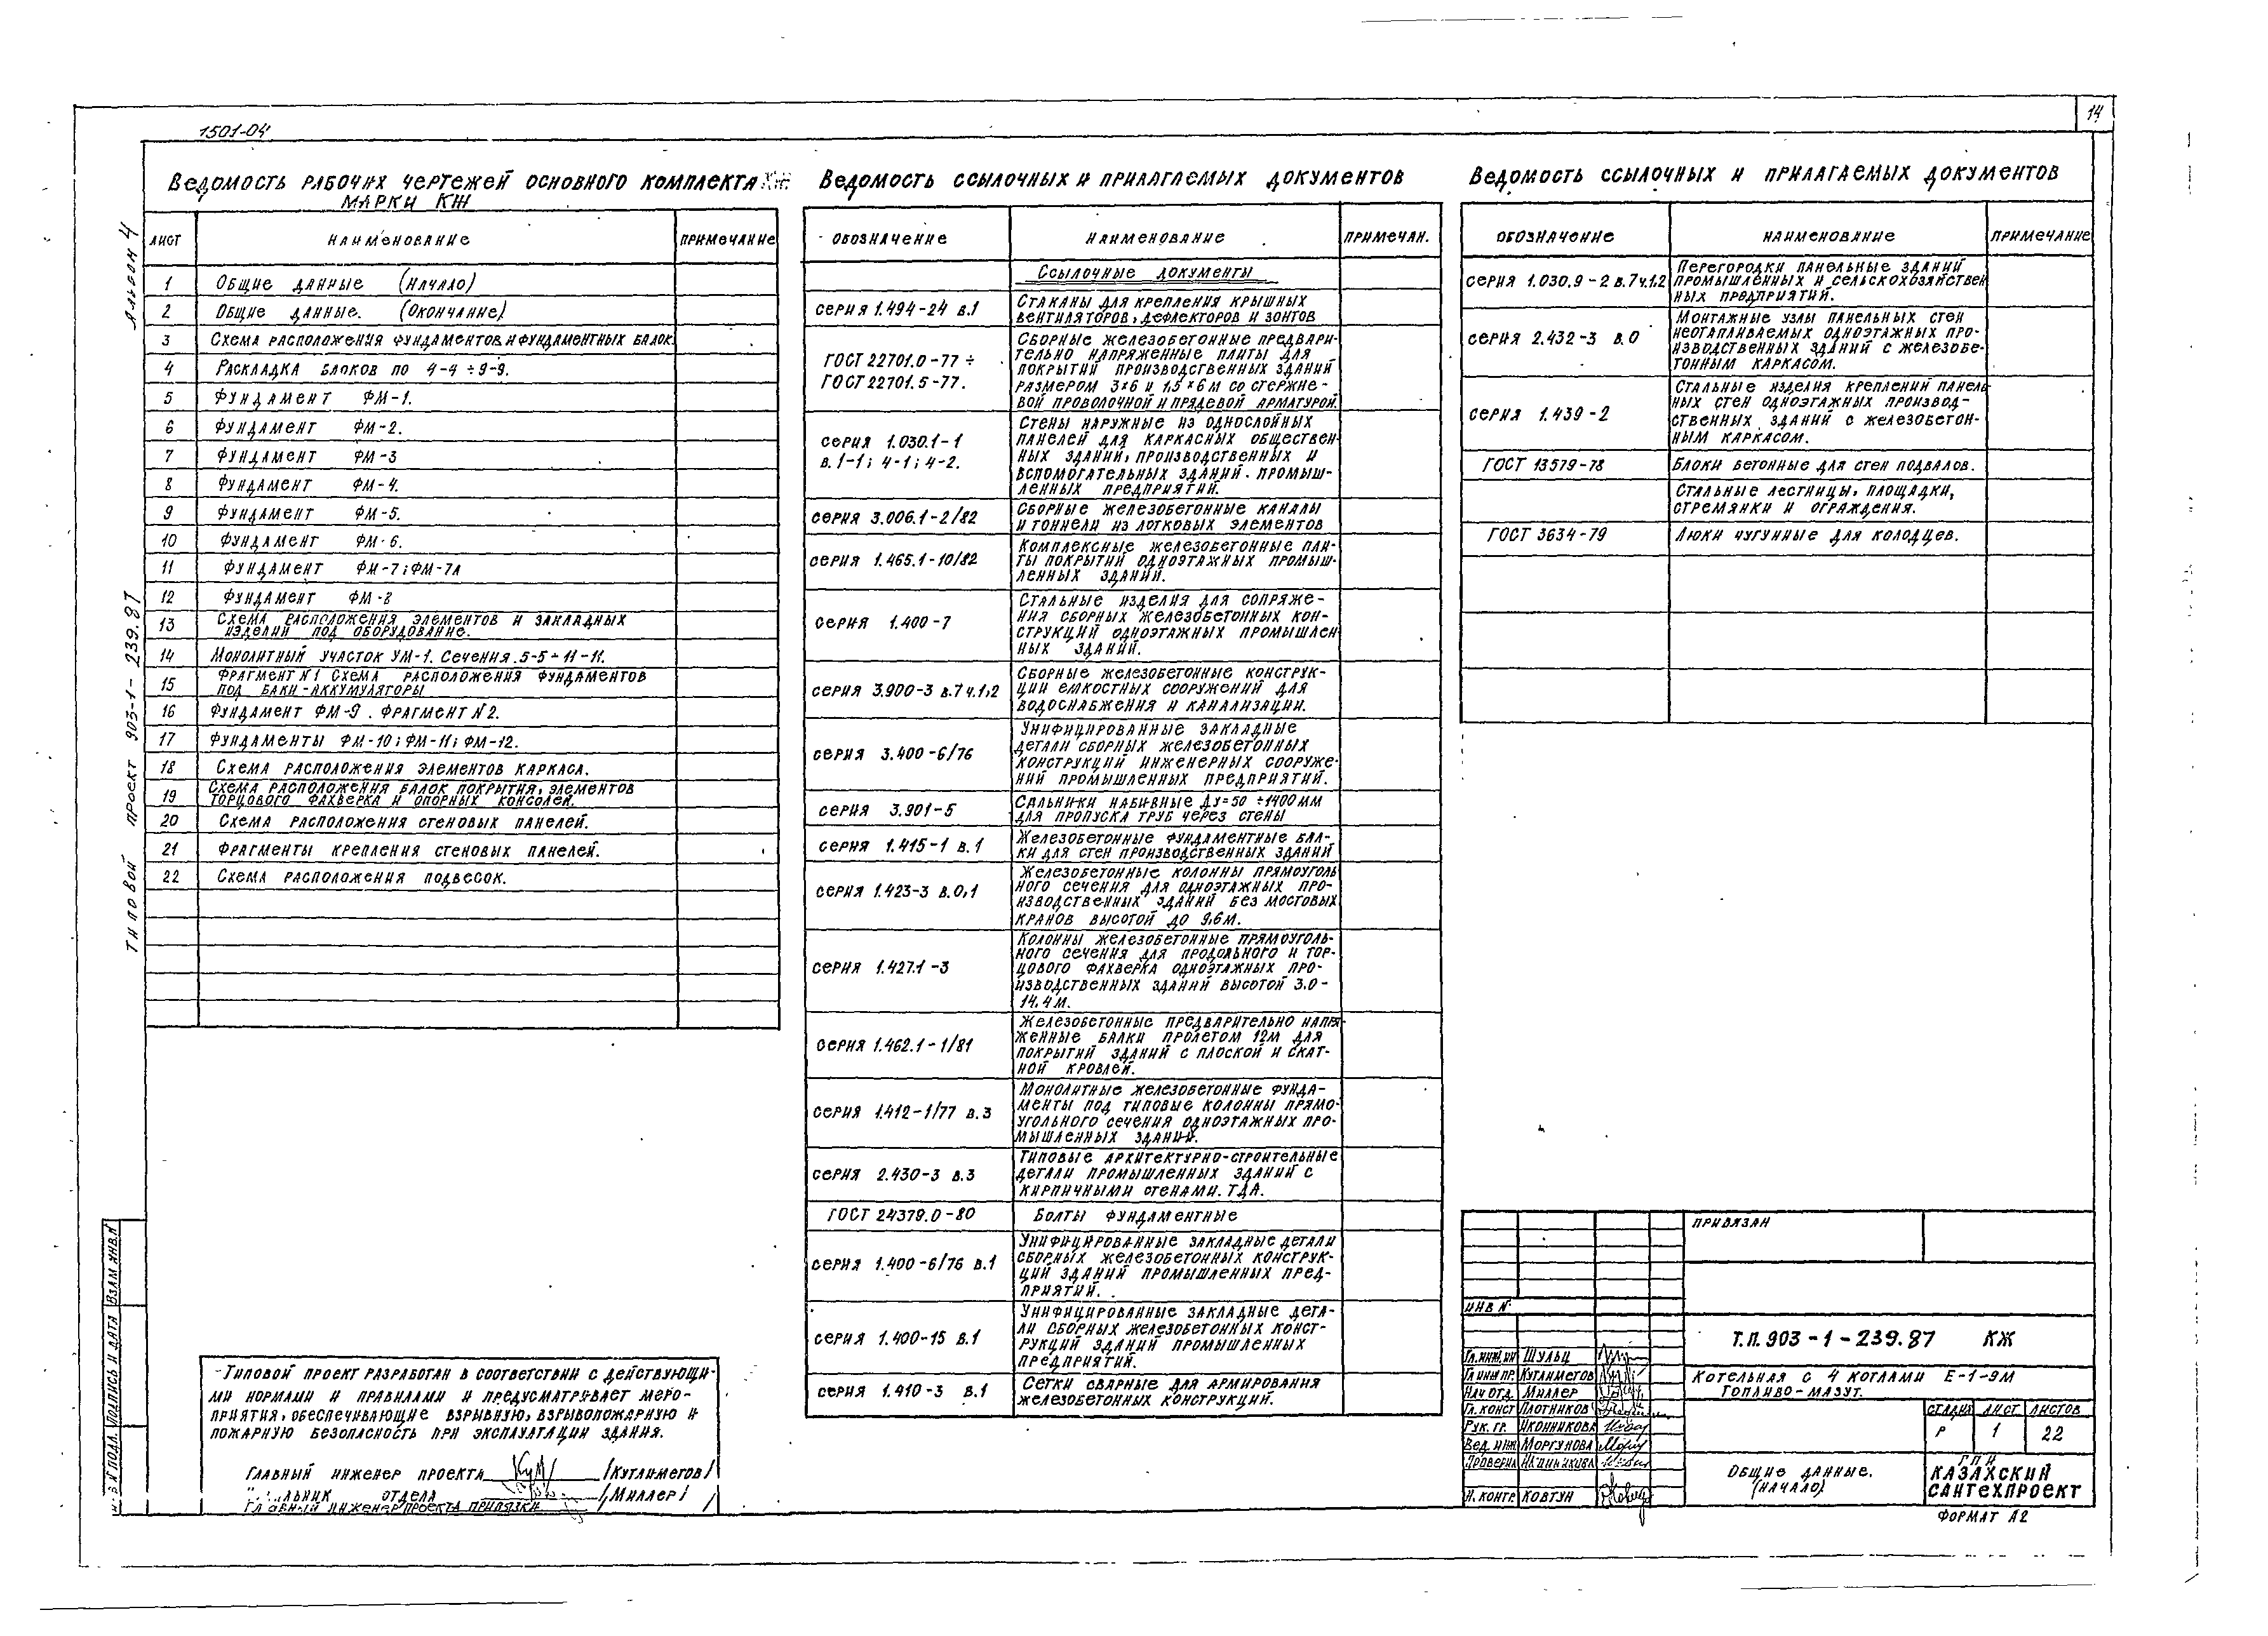 14
1501-04
Альбом 4
Типовой проект 903-1-239.87
Ведомость рабочих чертежей основного комплекта
марки КЖ
Лист Наименование Примечание
1 Общие данные (начало)
2 Общие данные. (окончание)
3 Схема расположения фундаментов и фундаментных балок.
4 Раскладка блоков по 4-4 ÷ 9-9.
5 Фундамент ФМ-1.
6 Фундамент ФМ-2.
7 Фундамент ФМ-3
8 Фундамент ФМ-4.
9 Фундамент ФМ-5.
10 Фундамент ФМ-6.
11 Фундамент ФМ-7; ФМ-7А
12 Фундамент ФМ-8
13 Схема расположения элементов и закладных
изделий под оборудование.
14 Монолитный участок УМ-1. Сечения 5-5 ÷ 11-11.
15 Фрагмент N1 Схема расположения фундаментов
под баки-аккумуляторы
16 Фундамент ФМ-9. Фрагмент N2.
17 Фундаменты ФМ-10; ФМ-11; ФМ-12.
18 Схема расположения элементов каркаса.
19 Схема расположения балок покрытия, элементов
торцового фахверка и опорных консолей.
20 Схема расположения стеновых панелей.
21 Фрагменты крепления стеновых панелей.
22 Схема расположения подвесок.
Ведомость ссылочных и прилагаемых документов
Обозначение Наименование Примечан.
Ссылочные документы
серия 1.494-24 в.1 Стаканы для крепления крышных
вентиляторов, дефлекторов и зонтов
ГОСТ 22701.0-77 ÷
ГОСТ 22701.5-77.
Сборные железобетонные предвари-
тельно напряженные плиты для
покрытий производственных зданий
размером 3×6 и 1,5×6м со стержне-
вой проволочной и прядевой арматурой.
серия 1.030.1-1
в.1-1; 4-1; 4-2.
Стены наружные из однослойных
панелей для каркасных обществен-
ных зданий, производственных и
вспомогательных зданий. промыш-
ленных предприятий.
серия 3.006.1-2/82 Сборные железобетонные каналы
и тоннели из лотковых элементов
серия 1.465.1-10/82 Комплексные железобетонные пли-
ты покрытий одноэтажных промыш-
ленных зданий.
серия 1.400-7 Стальные изделия для сопряже-
ния сборных железобетонных кон-
струкций одноэтажных промышлен
ных зданий.
серия 3.900-3 в.7 ч.1,2 Сборные железобетонные конструк-
ции емкостных сооружений для
водоснабжения и канализации.
серия 3.400-6/76 Унифицированные закладные
детали сборных железобетонных
конструкций инженерных сооруже-
ний промышленных предприятий.
серия 3.901-5 Сальники набивные Ду=50 ÷1400мм
для пропуска труб через стены
серия 1.415-1 в.1 Железобетонные фундаментные бал-
ки для стен производственных зданий
серия 1.423-3 в.0,1 Железобетонные колонны прямоуголь
ного сечения для одноэтажных про-
изводственных зданий без мостовых
кранов высотой до 9,6м.
серия 1.427.1-3 Колонны железобетонные прямоуголь-
ного сечения для продольного и тор-
цового фахверка одноэтажных про-
изводственных зданий высотой 3.0-
14.4м.
серия 1.462.1-1/81 Железобетонные предварительно напря-
женные балки пролетом 12м для
покрытий зданий с плоской и скат-
ной кровлей.
серия 1.412-1/77 в.3 Монолитные железобетонные фунда-
менты под типовые колонны прямо-
угольного сечения одноэтажных про-
мышленных зданий.
серия 2.430-3 в.3 Типовые архитектурно-строительные
детали промышленных зданий с
кирпичными стенами. ТДА.
ГОСТ 24379.0-80 Болты фундаментные
серия 1.400-6/76 в.1 Унифицированные закладные детали
сборных железобетонных конструк-
ций зданий промышленных пред-
приятий.
серия 1.400-15 в.1 Унифицированные закладные дета-
ли сборных железобетонных конст-
рукций зданий промышленных
предприятий.
серия 1.410-3 в.1 Сетки сварные для армирования
железобетонных конструкций.
Ведомость ссылочных и прилагаемых документов
Обозначение Наименование Примечание
серия 1.030.9-2 в.7 ч.1,2 Перегородки панельные зданий
промышленных и сельскохозяйствен
ных предприятий.
серия 2.432-3 в.0 Монтажные узлы панельных стен
неотапливаемых одноэтажных про-
изводственных зданий с железобе-
тонным каркасом.
серия 1.439-2 Стальные изделия креплений панель
ных стен одноэтажных производ-
ственных зданий с железобетон-
ным каркасом.
ГОСТ 13579-78 Блоки бетонные для стен подвалов.
Стальные лестницы, площадки,
стремянки и ограждения.
ГОСТ 3634-79 Люки чугунные для колодцев.
Типовой проект разработан в соответствии с действующи-
ми нормами и правилами и предусматривает меро-
приятия, обеспечивающие взрывную, взрывопожарную и
пожарную безопасность при эксплуатации здания.
Главный инженер проекта /Кутлиметов/
отдела /Миллер/
Главный инженер проекта привязки / /
Взам инв.N
Подпись и дата
N подл.
Привязан
Инв N
Т.П. 903-1-239.87 КЖ
Гл.инж.ин Шульц
Гл инж пр. Кутлиметов
Нач отд. Миллер
Гл. конст Плотников
Рук. гр. Иконникова
Вед. инж Моргунова
Проверил Иконникова
Н. контр Ковтун
Котельная с 4 котлами Е-1-9М
Топливо-мазут.
Стадия Лист Листов
Р 1 22
Общие данные.
(начало)
ГПИ
Казахский
Сантехпроект
Формат А2